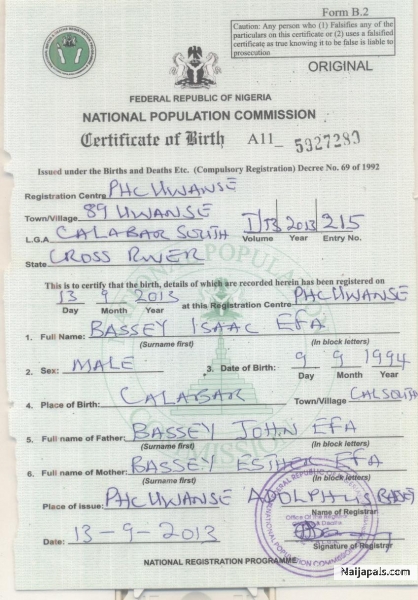 Form B.2
Caution: Any person who (1) Falsifies any of the
particulars on this certificate or (2) uses a falsified
certificate as true knowing it to be false is liable to
prosecution
ORIGINAL
FEDERAL REPUBLIC OF NIGERIA
NATIONAL POPULATION COMMISSION
Certificate of Birth A11_ 5927289
Issued under the Births and Deaths Etc. (Compulsory Registration) Decree No. 69 of 1992
Registration Centre PHC UWANSE
Town/Village 89 UWANSE
L.G.A CALABAR SOUTH Volume Year 2013 Entry No. 215
State CROSS RIVER
This is to certify that the birth, details of which are recorded herein has been registered on
13 9 2013 at this Registration Centre PHC UWANSE
Day Month Year
1. Full Name: BASSEY ISAAC EFA
(Surname first) (In block letters)
2. Sex: MALE 3. Date of Birth: 9 9 1994
Day Month Year
4. Place of Birth: CALABAR Town/Village CAL SOUTH
5. Full name of Father: BASSEY JOHN EFA
(Surname first) (In block letters)
6. Full name of Mother: BASSEY ESTHER EFA
(Surname first) (In block letters)
Place of issue: PHC UWANSE ADOLPHUS
Name of Registrar
Date: 13-9-2013
Signature of Registrar
NATIONAL REGISTRATION PROGRAMME
Naijapals.com